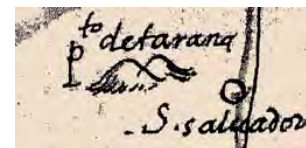 Pto detarana
S. saluador